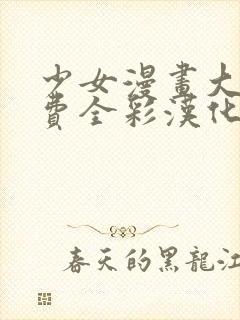 少女漫畫大
費全彩漢化
春天的黑龍江